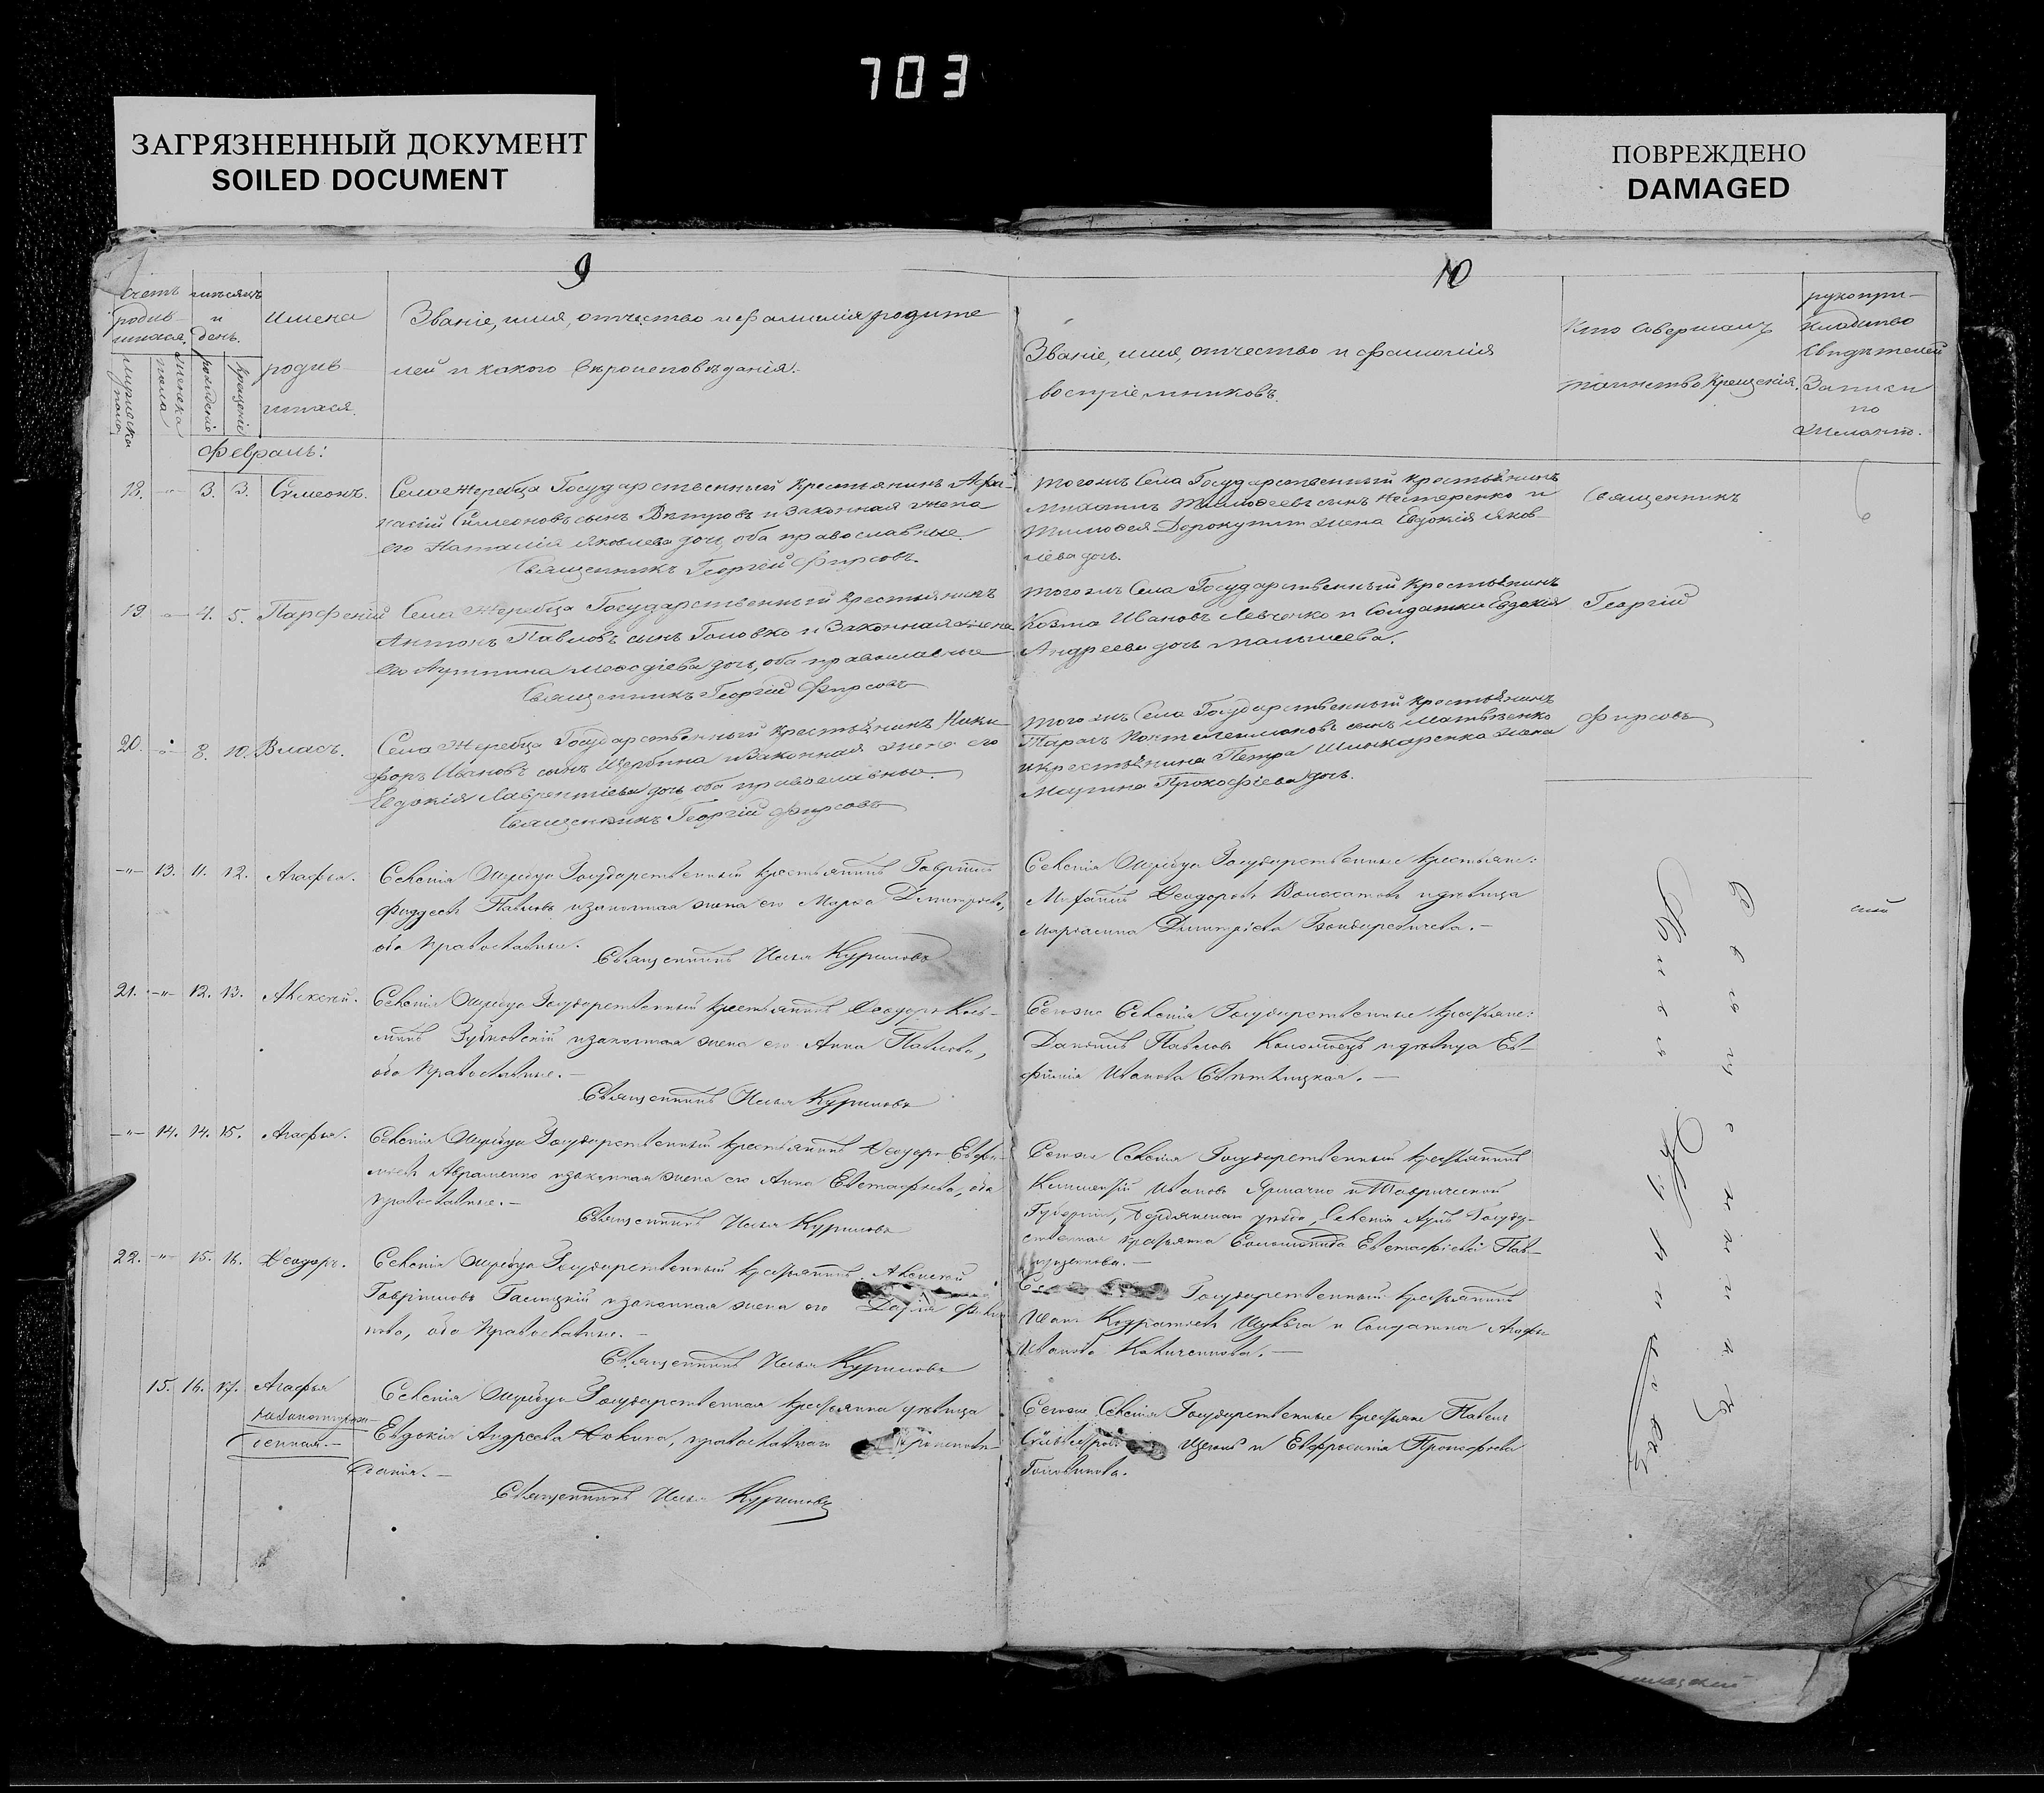 703
ЗАГРЯЗНЕННЫЙ ДОКУМЕНТ
SOILED DOCUMENT
ПОВРЕЖДЕНО
DAMAGED
9
10
Счетъ родив-шихся.
мужеска пола
женска пола
мѣсяцъ и день.
рожденіе
крещеніе
Имена
родив-
шихся.
Званіе, имя, отчество и фамилія родите
лей и какого вѣроисповѣданія.
Званіе, имя, отчество и фамилія
воспріемниковъ.
Кто совершалъ
таинство крещенія.
рукопри-
кладство
свидѣтелей
записи
по
желанію.
Февраль:
18. -"- 3. 3. Симеонъ.
Села Жеребца Государственный крестьянинъ Афа-
насій Симеоновъ сынъ Вѣтровъ и законная жена
его Наталія Яковлева дочь, оба православные.
Священникъ Георгій Фирсовъ.
тогожъ Села Государственный крестьянинъ
Михаилъ Тимоѳеевъ сынъ Нестеренко и
Тимоѳея жена Евдокія Яков-
лева дочь.
Священникъ
19. -"- 4. 5. Парфеній
Села Жеребца Государственный крестьянинъ
Антонъ Павловъ сынъ Головко и законная жена
его Меѳодіева дочь, оба православные
Священникъ Георгій Фирсовъ
тогожъ Села Государственный крестьянинъ
Козма Ивановъ Левченко и Солдатка Евдокія
Андреева дочь Малышева.
Георгій
20. -"- 8. 10. Власъ.
Села Жеребца Государственный крестьянинъ Ники-
форъ Ивановъ сынъ Щербина и законная жена его
Евдокія Лаврентіева дочь, оба православные.
Священникъ Георгій Фирсовъ
тогожъ Села Государственный крестьянинъ
Тарасъ Пантелеимоновъ сынъ Матвѣенко
и крестьянина Петра Шинкаренка жена
Марина Прокофіева дочь.
Фирсовъ
-"- 13. 11. 12. Агафья.
Селенія Жеребца Государственный крестьянинъ Гавріилъ
Павловъ и законная жена его Марѳа Димитріева,
оба православные.
Священникъ Илья Куриловъ
Селенія Жеребца Государственные крестьяне:
Ѳеодоровъ и дѣвица
Димитріева
21. -"- 12. 13. Алексѣй.
Селенія Жеребца Государственный крестьянинъ Ѳеодоръ Козь-
минъ и законная жена его Анна Павлова,
оба православные.-
Священникъ Илья Куриловъ
Сегоже Селенія Государственные крестьяне:
Даніилъ Павловъ Коломоецъ и дѣвица Ев-
фимія Иванова .-
-"- 14. 14. 15. Агафья.
Селенія Жеребца Государственный крестьянинъ Ѳеодоръ Евфи-
міевъ Авраменко и законная жена его Анна Евстафіева, оба
православные.-
Священникъ Илья Куриловъ
Сегоже Селенія Государственный крестьянинъ
Ивановъ Ярмачко и Таврической
Губерніи, Бердянскаго уѣзда, Селенія Государ-
ственная крестьянка Евстафіева
22. -"- 15. 16. Ѳеодоръ.
Селенія Жеребца Государственный крестьянинъ Алексѣй
Гавріиловъ Галицкій и законная жена его Дарія
оба православные.-
Священникъ Илья Куриловъ
Государственный крестьянинъ
Кодратіевъ Шульга и Солдатка
Иванова Каличенкова.-
15. 16. 17. Агафья
незаконнорож-
денная.-
Селенія Жеребца Государственная крестьянка дѣвица
Евдокія Андреева православнаго
данія.-
Священникъ Илья Куриловъ
Сегоже Селенія Государственные крестьяне Павелъ
и Евфросинія Прокофіева
Головкова.
Священникъ
Илья Куриловъ